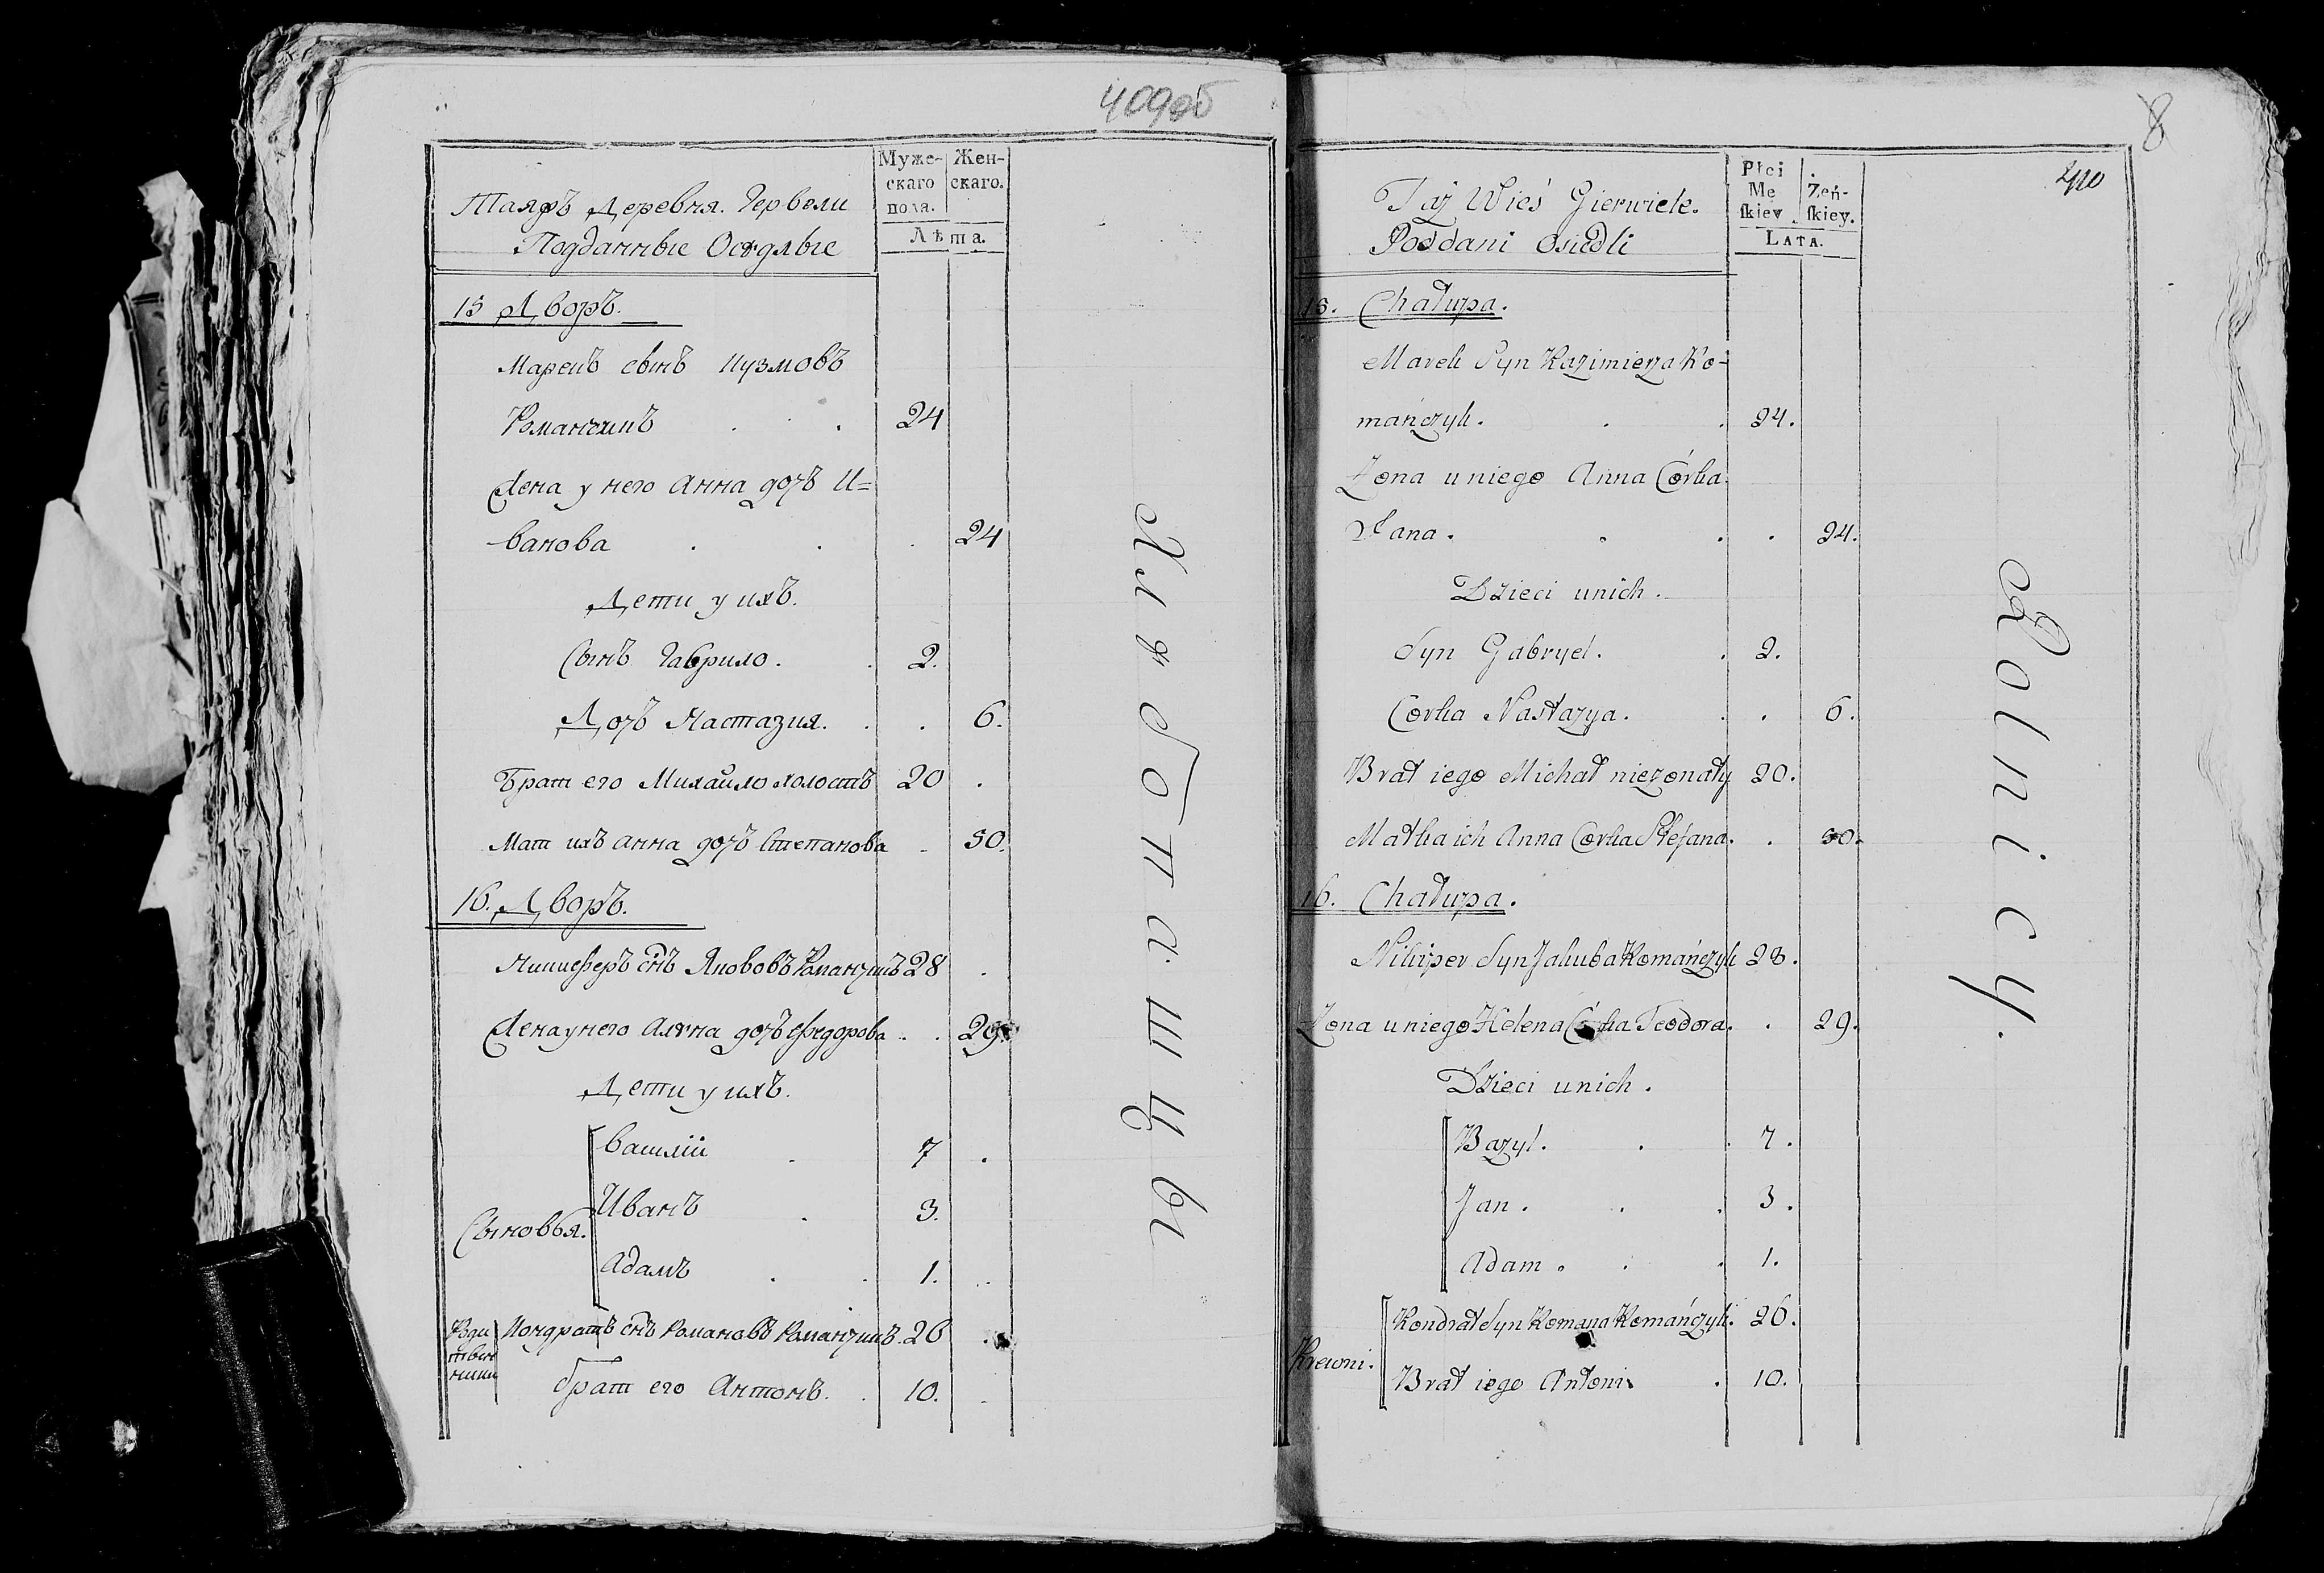 409об
Муже-
скаго
пола.
Жен-
скаго.
Лѣта.
Таяжъ Деревня. Гервели
Подданные Осѣдлые
15 Дворъ.
Марекъ сынъ Кузмовъ
Романчикъ . . 24
Жена у него Анна дочъ И=
ванова . . . 24
Дети у ихъ.
Сынъ Гаврило. . 2.
Дочъ Настазия. . . 6.
Братъ его Михайло холостъ 20 .
Мат ихъ Анна дочъ Степанова . 50.
16. Дворъ.
Никиферъ снъ Якововъ Романчикъ 28 .
Жена у него Алѣна дочъ Федорова . . 29.
Дети у ихъ.
Сыновья.
Василiй . 7 .
Иванъ . 3.
Адамъ . . 1. .
Родственники
Кондратъ снъ Романовъ Романчикъ. 26 .
брат его Антонъ. . 10. .
Хлѣбопашцы
8
410
Płci
Mę
skiey.
Żeń-
skiey.
LATA.
Taż Wieś Gierwiele.
Poddani Osiedli
15. Chałupa.
Marek Syn Kazimierza Ro-
mańczyk. . . 24.
Żona u niego Anna Córka
Jana. . . . 24.
Dzieci u nich.
Syn Gabryel. . 2.
Corka Nastazya. . . 6.
Brat iego Michał nieżonaty 20.
Matka ich Anna Corka Stefana. . 50.
16. Chałupa.
Nikiper Syn Jakuba Romańczyk 28.
Żona u niego Helena Córka Teodora. . 29.
Dzieci u nich.
Bazyl. . . 7.
Jan. . . 3.
Adam. . . 1.
Krewni.
Kondrat Syn Romana Romańczyk. 26.
Brat iego Antoni . 10.
Rolnicy.